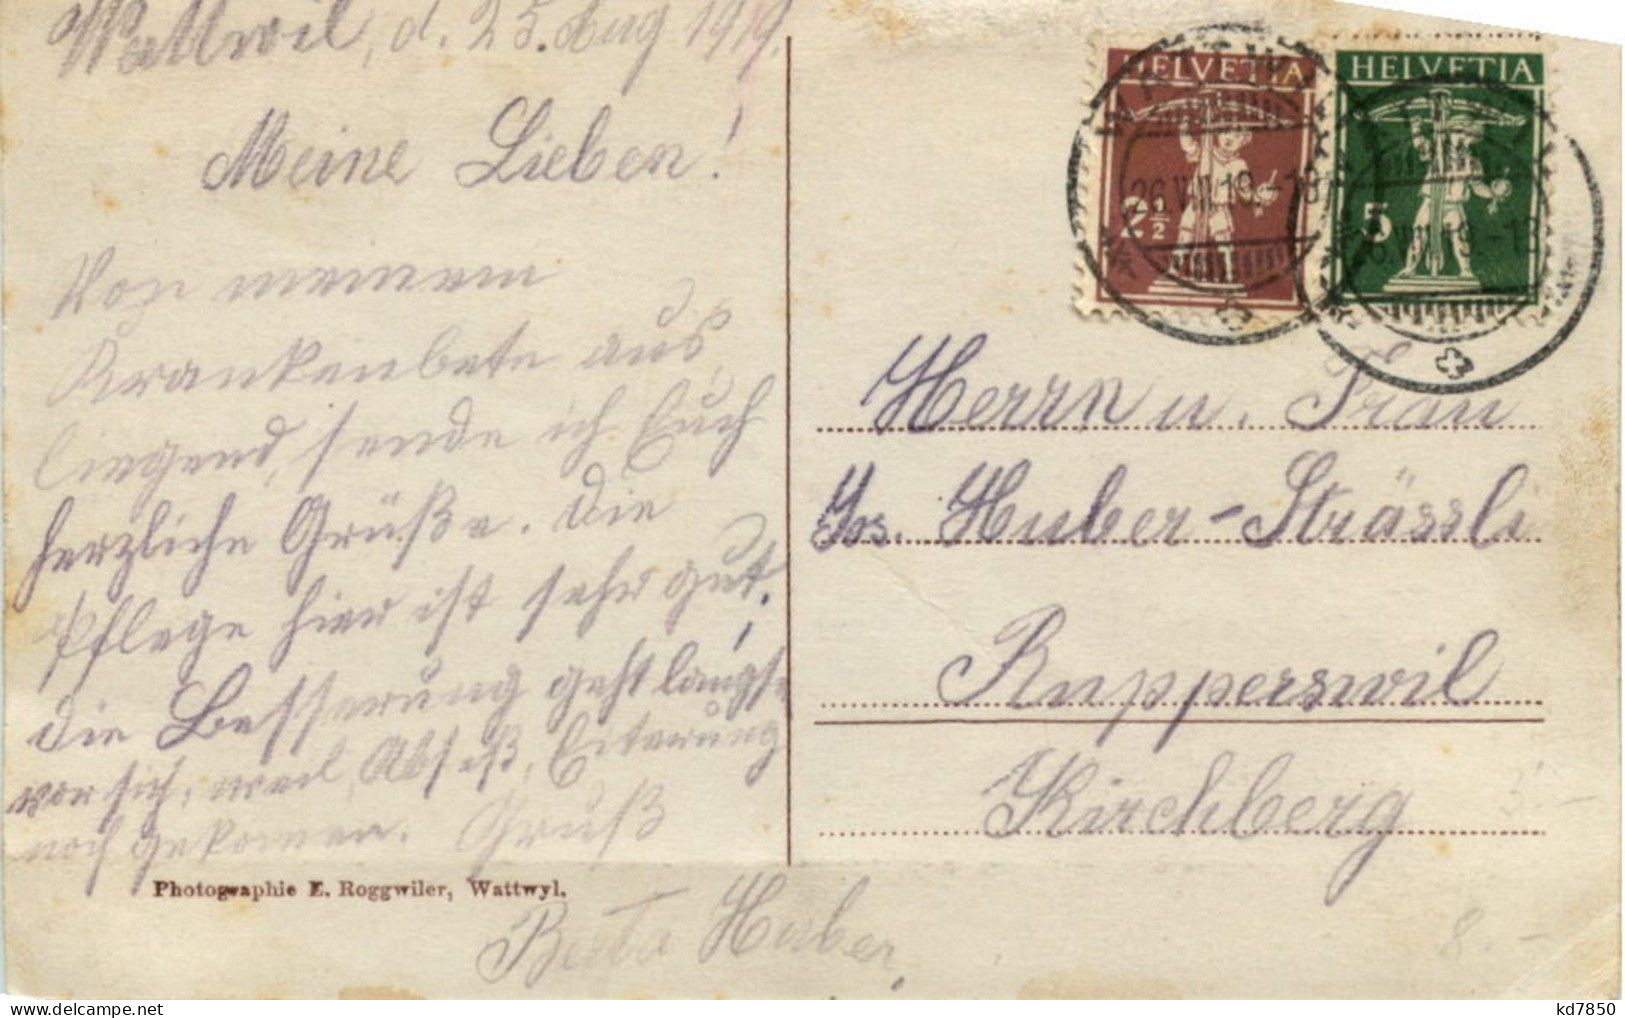 Wattwil, d. 25. Aug 1919.
Meine Lieben!
Von meinem
Krankenbete aus
liegend, sende ich Euch
herzliche Grüße. Die
Pflege hier ist sehr gut,
die Besserung geht langs.
vor sich, weil Abseß, Eiterung
noch gekommen. Gruß
Berta Huber
Photographie E. Roggwiler, Wattwyl.
HELVETIA
2½
HELVETIA
5
26.VIII.19.-18
Herrn u. Frau
Jos. Huber-Strässli
Rupperswil
Kirchberg
8.-
kd7850